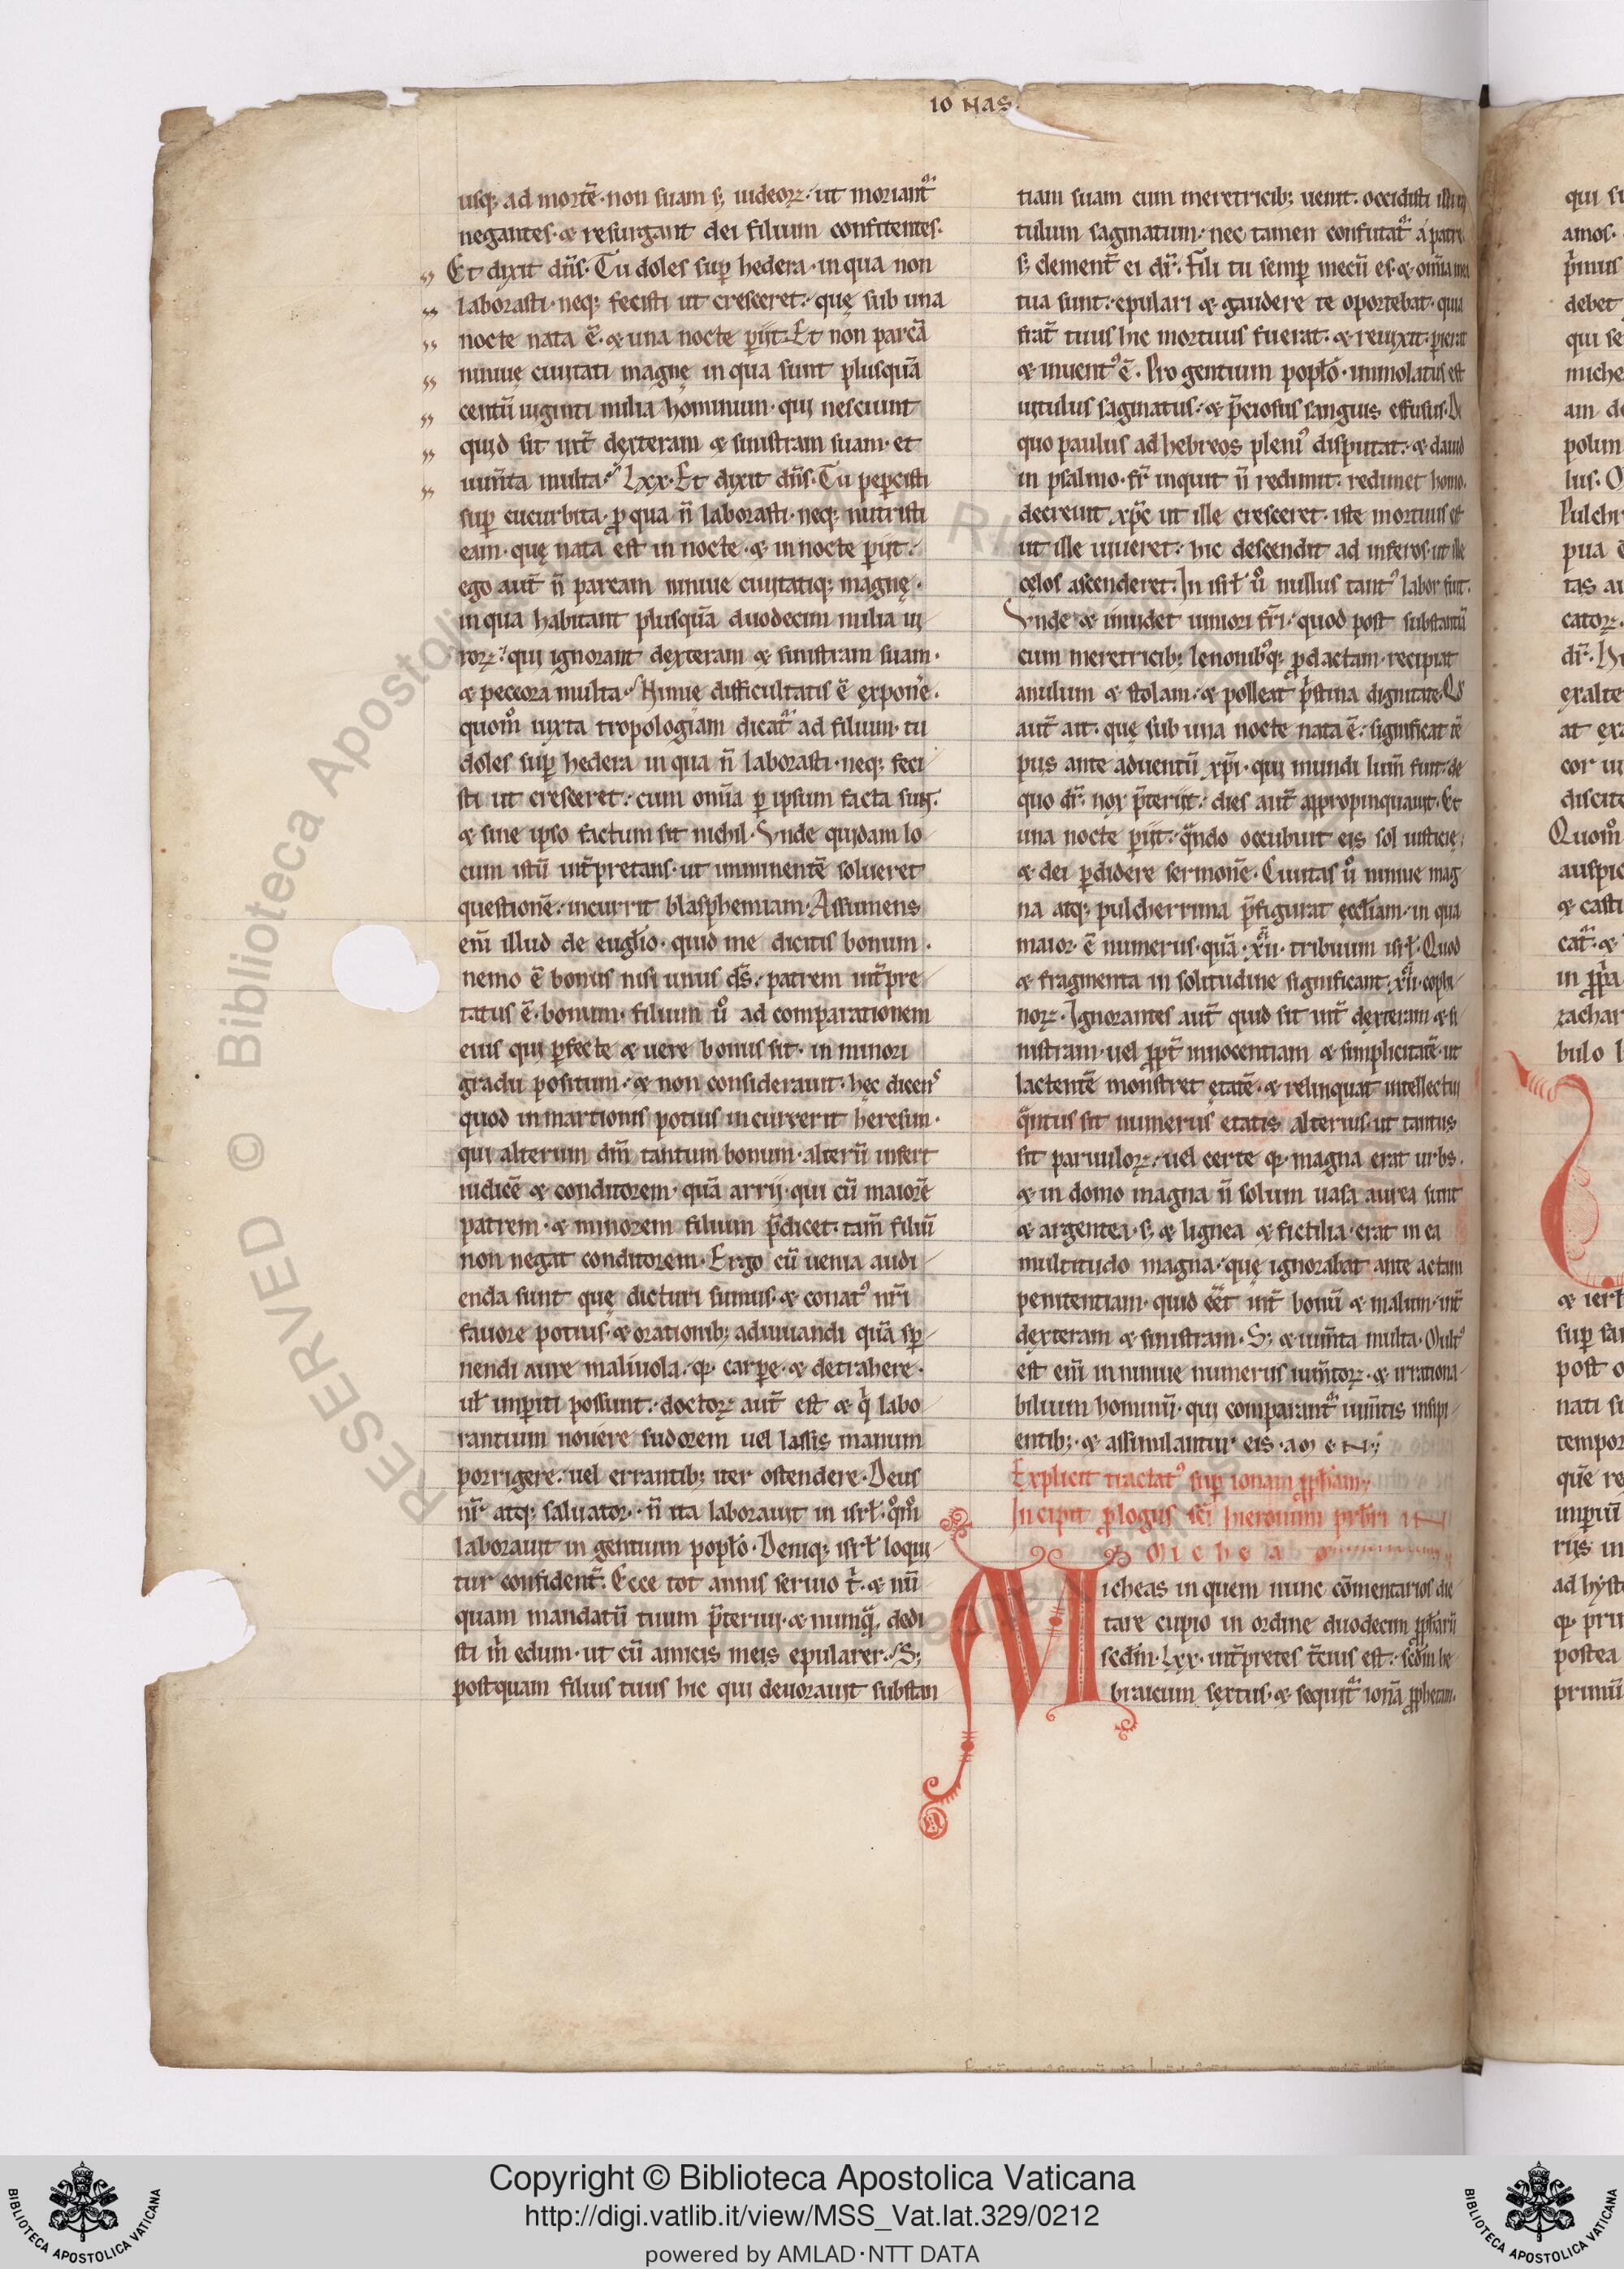 IONAS
usq; ad mortē. non suam s; iudeoꝝ. ut moriant᷑
negantes. & resurgant dei filium confitentes.
Et dixit dn̄s. Tu doles suꝑ hedera. in qua non
laborasti. neq; fecisti ut cresceret. quę sub una
nocte nata ē. & una nocte ꝑiit. Et non parcā
niniuę ciuitati magnę in qua sunt plusquā
centū uiginti milia hominum. qui nesciunt
quid sit int̄ dexteram & sinistram suam. et
ium̄ta multa. Lxx. Et dixit dn̄s. Tu peꝑcisti
suꝑ cucurbita. ꝓ qua n̄ laborasti. neq; nutristi
eam. quę nata est in nocte. & in nocte ꝑiit.
ego aut̄ n̄ parcam niniue ciuitatiq; magnę.
in qua habitant plusquā duodecim milia ui
roꝝ. qui ignorant dexteram & sinistram suam.
& peccora multa. Nimię difficultatis ē expon̄e.
quom̊ iuxta tropologiam dicat᷑ ad filium. tu
doles suꝑ hedera in qua n̄ laborasti. neq; feci
sti ut cresceret. cum om̄ia ꝑ ipsum facta sun̄.
& sine ipso factum sit nichil. Vnde quidam lo
cum istū int̄pretans. ut imminentē solueret
questionē. incurrit blasphemiam. Assumens
eni̅ illud de eugl̄io. quid me dicitis bonum.
nemo ē bonus nisi unus ds̄. patrem int̄pre
tatus ē. bonum. filium ů ad comparationem
eius qui ꝑfecte & uere bonus sit. in minori
gradu positum. & non considerauit. hęc dicens
quod in martionis potius incurrerit heresim.
qui alterum dm̄ tantum bonum. alterū infert
iudicē & conditorem. quā arrij. qui cū maiorē
patrem. & minorem filium p̄dicet. tam̄ filiū
non negat conditorem. Ergo cū uenia audi
enda sunt quę dicturi sumus. & conat᷒ nr̄i
fauore potius. & orationib; adiuuandi quā sꝑ
nendi aure maliuola. qꝫ carꝑe. & detrahere.
ul̄ imꝑiti possunt. doctoꝝ aut̄ est & qͥ labo
rantium nouere sudorem uel lassis manum
porrigere. uel errantib; iter ostendere. Deus
nr̄ atq; saluator. n̄ ita laborauit in isrl̄. qͦm̊
laborauit in gentium popl̄o. Deniq; isrl̄ loqui
tur confident̄. Ecce tot annis seruio t̄. & nū
quam mandatū tuum p̄teriui. & numqͣ dedi
sti m̄ edum. ut cū amicis meis epularer. S;
postquam filius tuus hic qui deuorauit substan
tiam suam cum meretricib; uenit. occidisti illi ui
tulum saginatum. nec tamen confutat᷑ a patre.
s; clement̄ ei dr̄. Fili tu semꝑ mecū es. & om̄ia mea
tua sunt. epulari & gaudere te oportebat. quia
frat̄ tuus hic mortuus fuerat. & reuixit. ꝑierat
& inuent᷒ ē. Pro gentium popl̄o. immolatus est
uitulus saginatus. & p̄ciosus sanguis effusus. De
quo paulus ad hebreos pleni᷒ disputat. & dauid
in psalmo. fr̄ inquit n̄ redimit. redimet homo.
decreuit xp̄c ut ille cresceret. iste mortuus est
ut ille uiueret. hic descendit ad inferos. ut ille
cęlos ascenderet. In isrl̄ ů nullus tant᷒ labor fuit.
Vnde & inuidet iuniori fr̄i. quod post substantiā
cum meretricib; lenonib᷒q; ꝑdactam. recipiat
anulum & stolam. & polleat p̄stina dignitate. Qd̄
aut̄ ait. quę sub una nocte nata ē. significat tē
pus ante aduentū xp̄i. qui mundi lum̄ fuit. de
quo dr̄. nox p̄teriit. dies aut̄ appropinquauit. Et
una nocte ꝑiit. qͣndo occubuit eis sol iusticię.
& dei ꝑdidere sermonē. Ciuitas ů niniue mag
na atq; pulcherrima p̄figurat ęccl̄iam. in qua
maior ē numerus. quā .xii. tribuum isrl̄. Quod
& fragmenta in solitudine significant .xii. cophi
noꝝ. Ignorantes aut̄ quid sit int̄ dexteram & si
nistram. uel ꝓpt̄ innocentiam & simplicitatē. ut
lactentē monstret ętatē. & relinquat intellectui
qͣntus sit numerus etatis alterius. ut tantus
sit paruuloꝝ. uel certe qꝫ magna erat urbs.
& in domo magna n̄ solum uasa aurea sunt
& argentea. s; & lignea & fictilia. erat in ea
multitudo magna. quę ignorabat ante actam
penitentiam. quid eēt int̄ bonū & malum. int̄
dexteram & sinistram. S; & ium̄ta multa. Mult᷒
est eni̅ in niniue numerus ium̄toꝝ. & irrationa
bilium hominū. qui comparant᷑ ium̄tis insipi
entib;. & assimilantur eis. AMEN.
Explicit tractat᷒ suꝑ ionam ꝓph̄am.
Incipit ꝓlogus sc̄i hieronimi prb̄ri in
Michea
Micheas in quem nunc cōmentarios dic
tare cupio in ordine duodecim ꝓph̄arū
scd̄m .Lxx. int̄pretes t̄cius est. scd̄m he
braicum sextus. & sequit᷑ ionā ꝓphetam.
Copyright © Biblioteca Apostolica Vaticana
http://digi.vatlib.it/view/MSS_Vat.lat.329/0212
powered by AMLAD·NTT DATA
BIBLIOTECA APOSTOLICA VATICANA
BIBLIOTECA APOSTOLICA VATICANA